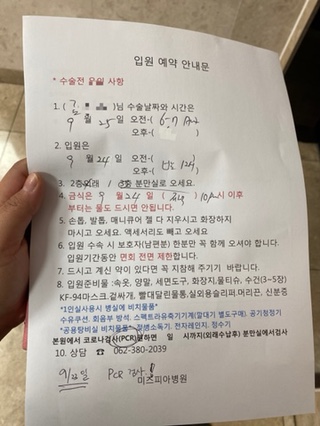 입원 예약 안내문
* 수술전 사항
1. ( )님 수술날짜와 시간은
9 월 25 일 오전-(
오후-( )
2. 입원은
9 월 24 일 오전-(
오후-( )
3. 2층외래 / 분만실로 오세요.
4. 금식은 9 월 24 일 ( ) 10시 이후
부터는 물도 드시면 안됩니다.
5. 손톱, 발톱, 매니큐어 젤 다 지우시고 화장하지
마시고 오세요. 액세서리도 빼고 오세요
6. 입원 수속 시 보호자(남편분) 한분만 꼭 함께 오셔야 합니다.
입원기간동안 면회 전면 제한합니다.
7. 드시고 계신 약이 있다면 꼭 지참해 주기기 바랍니다.
8. 입원준비물 :속옷, 양말, 세면도구, 화장지,물티슈, 수건(3~5장)
KF-94마스크,겉싸개, 빨대달린물통,실외용슬리퍼,머리끈, 신분증
*1인실사용시 병실에 비치물품*
수유쿠션, 회음부 방석, 스펙트라유축기기계(깔대기 별도구매), 공기청정기
*공용탕비실 비치물품* 젖병소독기, 전자레인지, 정수기
본원에서 코로나검사(PCR)할 일 시까지(외래수납후) 분만실에서검사
10. 상담 ☎ 062-380-2039
9/22일 PCR 검사!
미즈피아병원